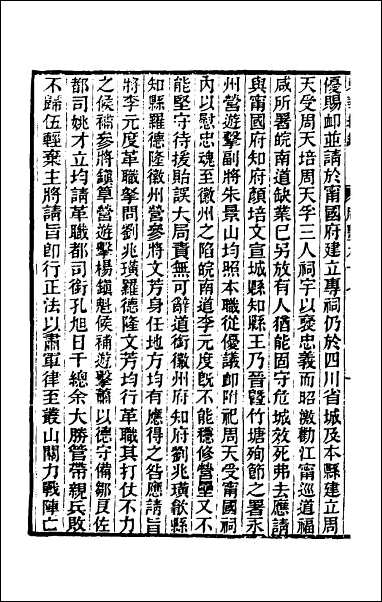 優賜卹並請於甯國府建立專祠仍於四川省城及本縣建立周
天受周天培周天孚三人祠宇以褒忠義而昭激勸江甯巡道福
咸所署皖南道缺業已另放有人猶能固守危城效死弗去應請
與甯國府知府顏培文宣城縣知縣王乃晉暨竹塘殉節之署永
州營遊擊副將朱景山均照本職從優議卹附祀周天受甯國祠
內以慰忠魂至徽州之陷皖南道李元度旣不能穩修營壘又不
能堅守待援貽誤大局責無可辭道銜徽州府知府劉兆璜歙縣
知縣羅德隆徽州營參將文芳身任地方均有應得之咎應請旨
將李元度革職拏問劉兆璜羅德隆文芳均行革職其打仗不力
之候補參將鎮筸營遊擊楊鎮魁候補遊擊蕭以德守備鄒艮佐
都司姚才立均請革職都司銜孔旭日千總余大勝管帶親兵敗
不歸伍輕棄主將請旨卽行正法以肅軍律至叢山關力戰陣亡